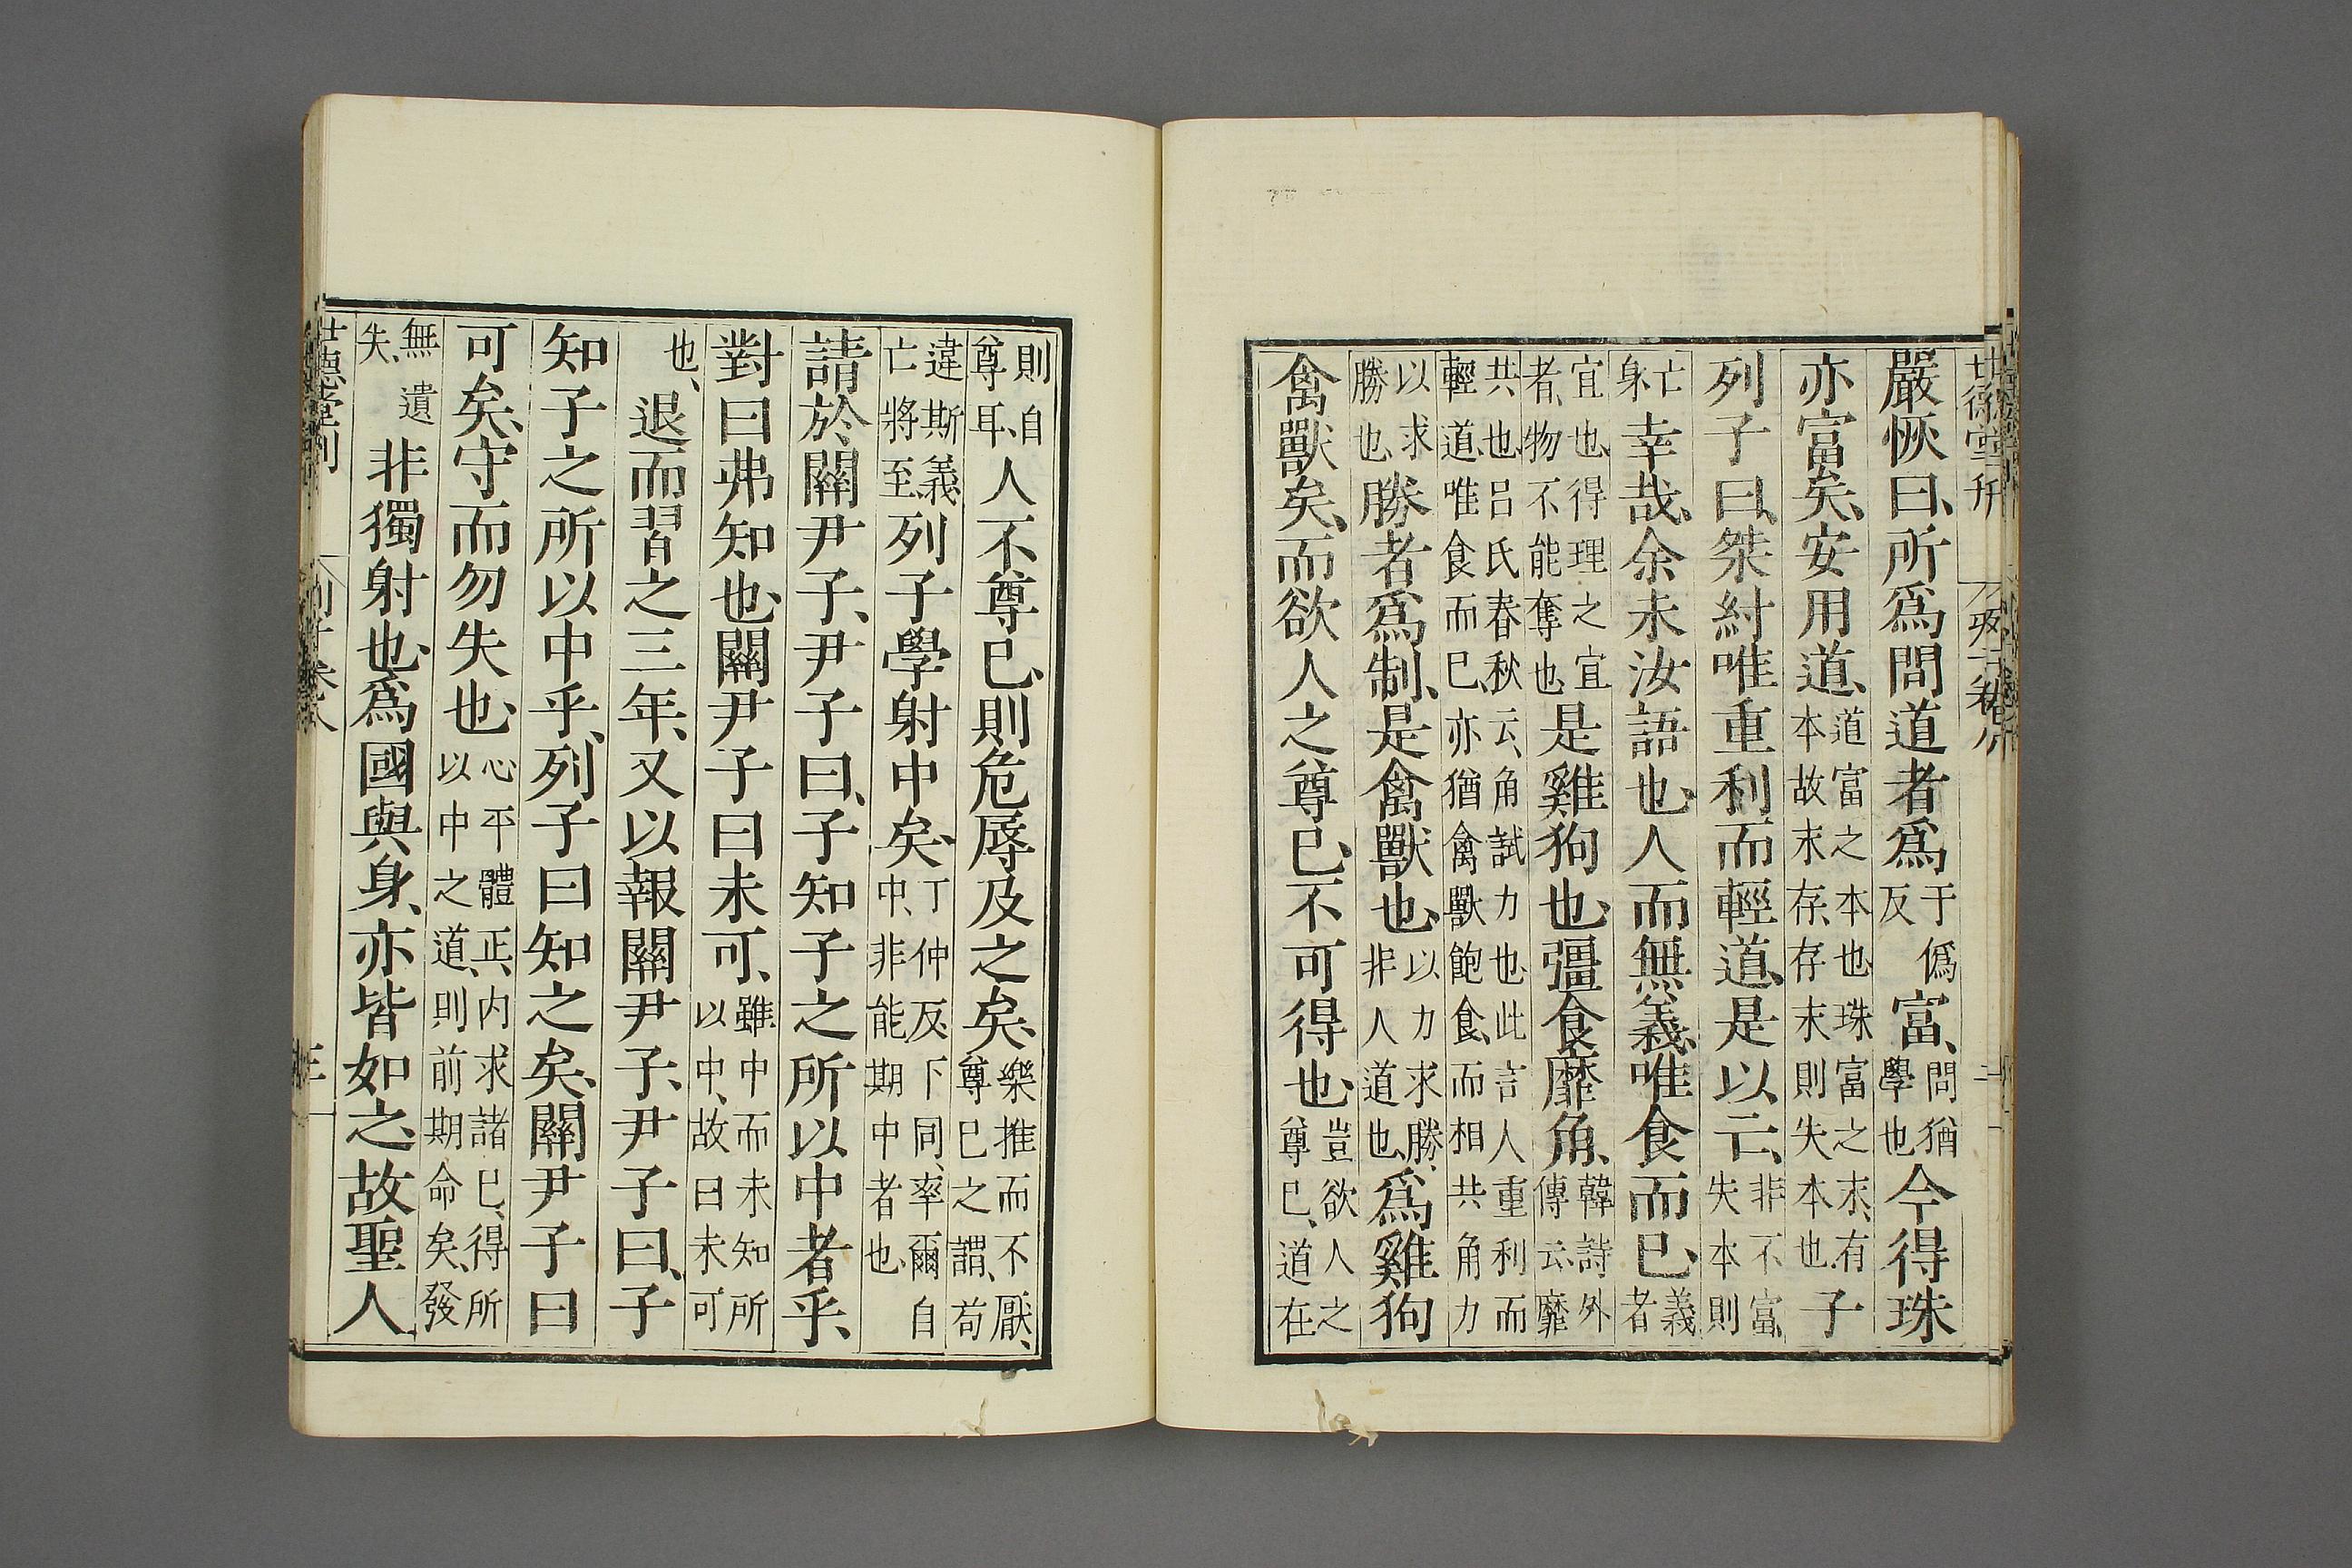 世德堂刊
二
嚴恢曰、所爲問道者爲于僞反富、問猶學也今得珠
亦富矣、安用道、道富之本也、珠富之末、有本故末存、存末則失本也、子
列子曰、桀紂唯重利而輕道、是以亡、非不富、失本則
亡身幸哉、余未汝語也、人而無義、唯食而已、義者
宜也、得理之宜者、物不能奪也是雞狗也、彊食靡角、韓詩外傳云、靡
共也、呂氏春秋云、角試力也、此言人重利而輕道、唯食而已、亦猶禽獸飽食、而相共角力
以求勝也、勝者爲制、是禽獸也、以力求勝、非人道也、爲雞狗
禽獸矣、而欲人之尊己、不可得也、豈欲人之尊己、道在
則自尊耳、人不尊己、則危辱及之矣、樂推而不厭、尊己之謂、苟
違斯義、亡將至列子學射中矣、丁仲反、下同、率爾自中、非能期中者也、
請於關尹子、尹子曰、子知子之所以中者乎、
對曰弗知也、關尹子曰未可、雖中而未知所以中、故曰未可
也、退而習之三年、又以報關尹子、尹子曰、子
知子之所以中乎、列子曰知之矣、關尹子曰
可矣、守而勿失也、心平體正、内求諸己、得所以中之道、則前期命矣、發
無遺失、非獨射也、爲國與身、亦皆如之、故聖人
世德堂刊
列子卷八
三